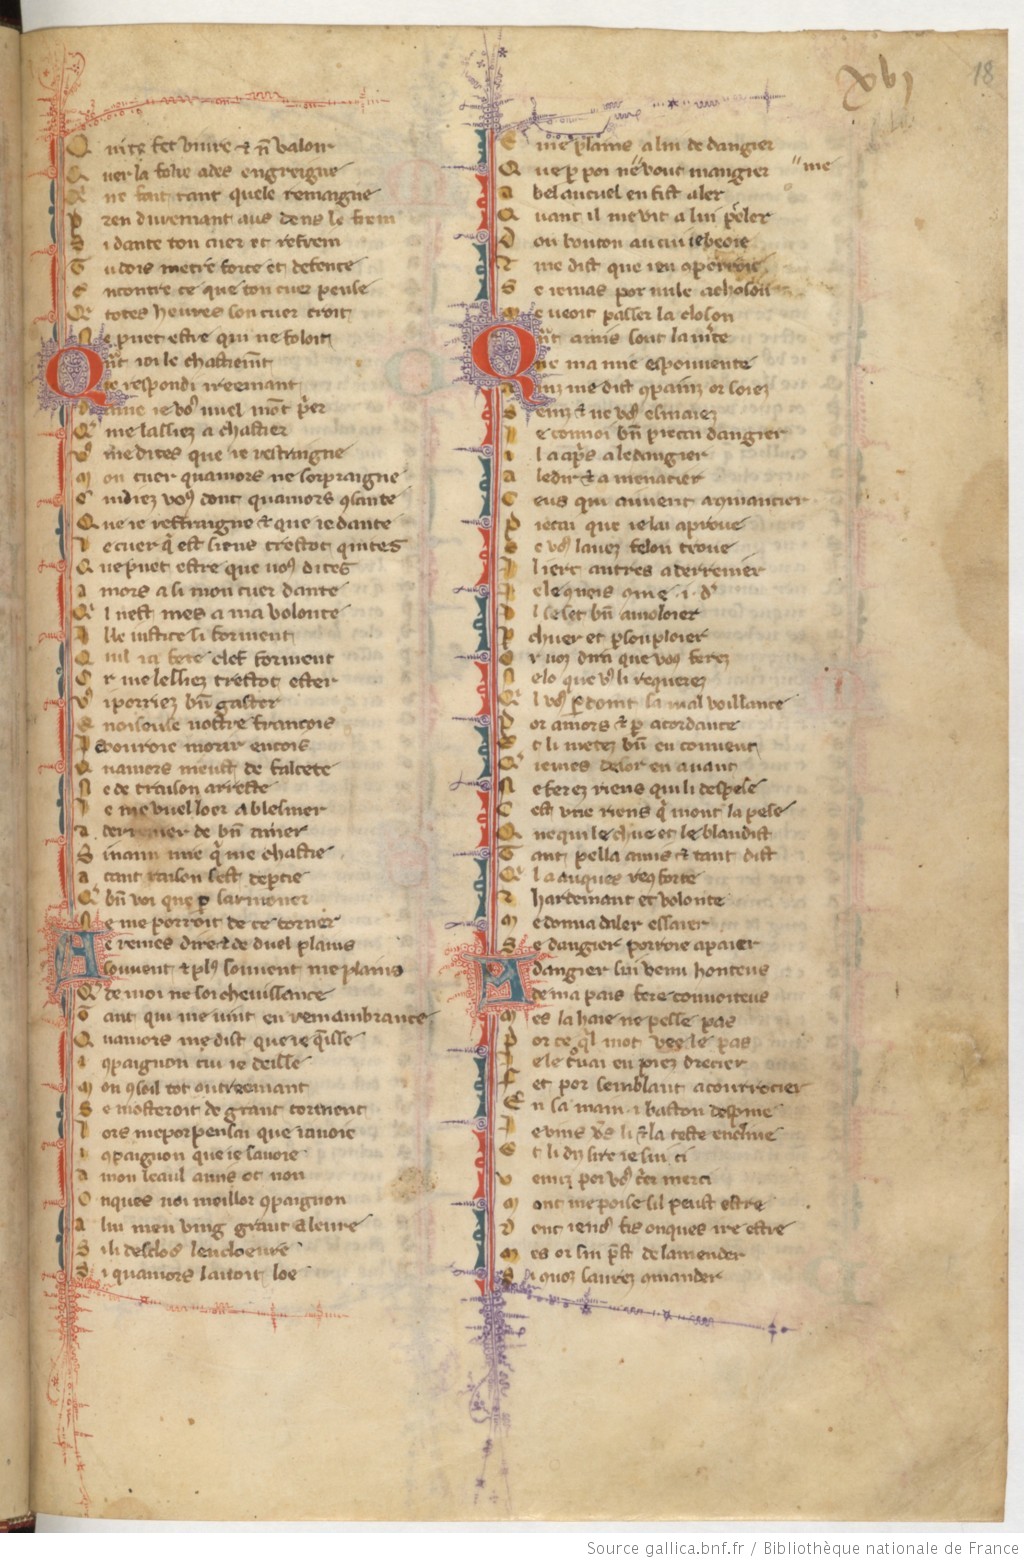 xvj
18
Qui te fet vivre en non valoir
Quer la folie ades engreigne
Qui ne fait tant quele remaigne
Pren durement aus dens le frein
Si dante ton cuer et refrein
Tu dois metre force et defence
Encontre ce que ton cuer pense
Qui totes heures son cuer croit
Ne puet estre qui ne foloit
Qnt ioi le chastiemt
Ie respondi ireemant
Dame ie vos vuel mot pier
Que me lassiez a chastier
Vos me dites que ie restraigne
Mon cuer quamors ne sorpraigne
Cuidiez vos dont quamors 9sante
Que ie restraigne et que ie dante
Le cuer qi est siens trestot quites
Que puet estre que vos dites
Amors a si mon cuer dante
Quil nest mes a ma volonte
Il le iustice si forment
Quil i a fete clef forment
Or me lessiez trestot ester
Vos i porriez bn gaster
En oiseuse vostre francois
Ie vouroie morir encois
Quamors meust de falcete
Ne de traison arreste
Ie me vuel loer a blesmer
A derrenier de bn amer
Si manuie qi me chastie
Atant raison sest deptie
Que bn voi que p sarmoner
Ne me porroit de ce torner
Ie remes dire et de duel plains
Souvent et pls souvent me plains
Que de moi ne soi chevissance
Tant qui me vint en remambrance
Quamors me dist que ie qeisse
I 9paignon cui ie deisse
Mon 9soil tot outreemant
Se mosteroit de grant torment
Lors me porpensai que iavoie
I 9paignon que ie savoie
A mon leaul amis ot non
Onques noi meillor 9paignon
A lui men ving grant aleure
Si li desclos lencloeure
Si quamors lavoit loe
E me plains a lui de dangier
Que p poi ne vout mangier "me
A bel aucuel en fist aler
Quant il me vit a lui pler
Dou bouton au cui ie beoie
Et me dist que ieu 9perroie
Se iemas por nule achoson
Me veoit passer la closon
Qnt amis sout la vite
Que ma nue espouvente
Ainz me dist 9painz or soiez
Seurz et ne vos esmaiez
Ie connoi bn pieca dangier
Il a apis a ledangier
A ledir et a menacier
Ceus qui aiment a 9mancier
Pieca que ie lai aprove
Se vos lavez felon trove
Il iert autres a derrenier
Ie le 9nois 9me .i. dr
Il se set bn amoloier
Por chuer et p souploier
Or vos dirai que vos ferez
Ie lo que vos li requerez
Quil vos pdoint sa mal voillance
Por amors et p acordance
Et li metez bn en convent
Que iemes desor en avant
Ne ferez riens qui li despese
Cest une riens qi mont la pese
Que qui le chue et le blandist
Tant pella amis et tant dist
Quil a auques res forte
Et hardemant et volonte
Me donna daler essaier
Se dangier porroie apaier
A dangier sui venu honteus
De ma pais fere convoiteus
Mes la haie ne passe pas
Por ce qil mot vee le pas
Ie le trvai en piez drecier
Fel por semblant a courrecier
En sa main .i. baston despine
Ie vins vs li et la teste encline
Et li dis sire ie sui ci
Venuz por vos cier merci
Mont me poise sil peust estre
Dont iens fis onques ire estre
Mes or sui pst de lamender
Si 9uoz savrez 9mander
Source gallica.bnf.fr / Bibliothèque nationale de France